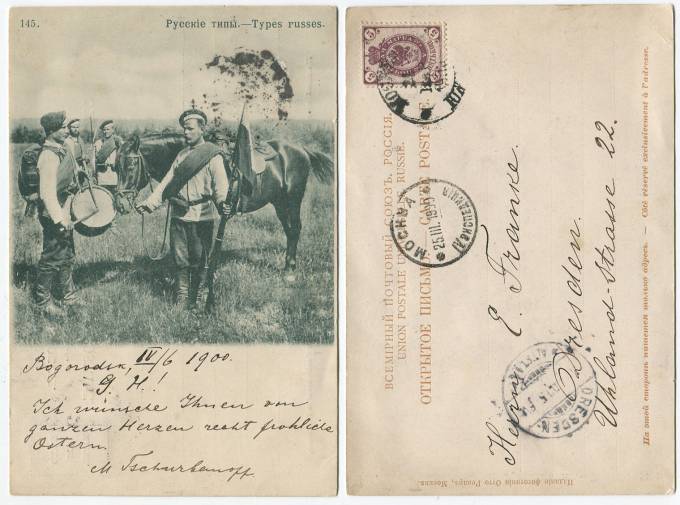 145.
Русскіе типы.—Types russes.
Bogorodsk, IV/6 1900.
G. H.!
Ich wünsche Ihnen von
ganzen Herzen recht fröhliche
Ostern.
M Tschurbanoff
ВСЕМІРНЫЙ ПОЧТОВЫЙ СОЮЗЪ. РОССІЯ.
UNION POSTALE UNIVERSELLE. RUSSIE.
ОТКРЫТОЕ ПИСЬМО. — CARTE POSTALE.
МОСКВА
25 III. 19
ЭКСПЕДИЦІЯ
Herrn E. Franke.
Dresden.
Uhland-Strasse 22.
DRESDEN
ALTST.
На этой сторонѣ пишется только адресъ. — Côté réservé exclusivement à l'adresse.
Изданіе фототипіи Отто Ренаръ, Москва.